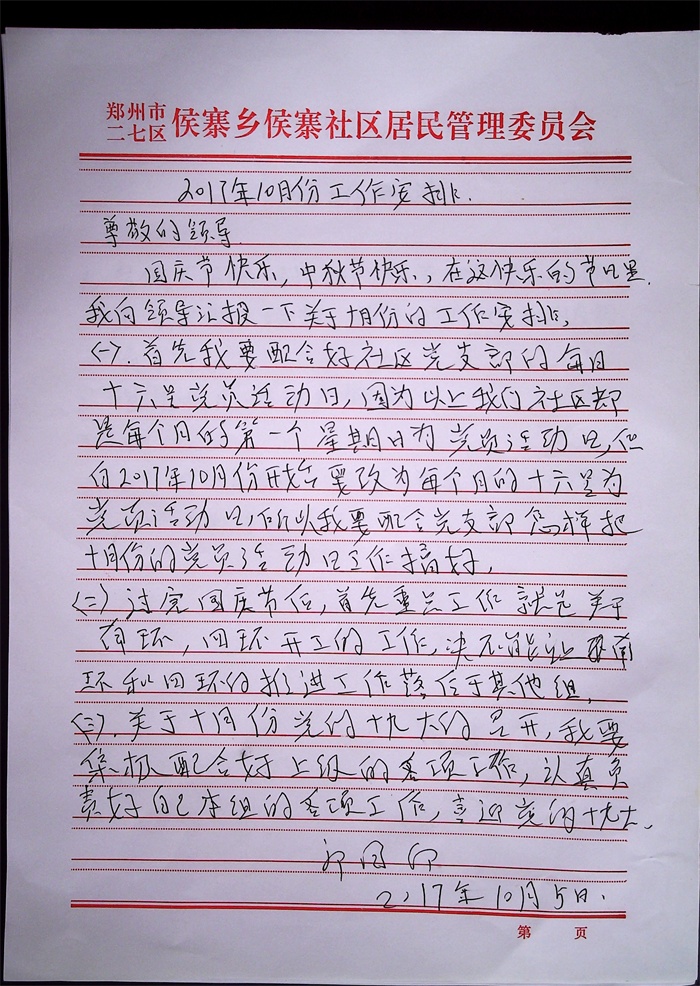 郑州市
二七区 侯寨乡侯寨社区居民管理委员会
2017年10月份工作安排.
尊敬的领导
国庆节快乐,中秋节快乐,在这快乐的节日里.
我向领导汇报一下关于十月份的工作安排,
(一).首先我要配合好社区党支部的每月
十六号党员活动日,因为以上我们社区都
是每个月的第一个星期日为党员活动日,但
自2017年10月份开始要改为每个月的十六号为
党员活动日,所以我要配合党支部怎样把
十月份的党员活动日工作搞好,
(二)过完国庆节后,首先重点工作就是关于
南环,四环开工的工作,决不能让南
环和四环的推进工作落后于其他组,
(三).关于十月份党的十九大的召开,我要
集极配合好上级的各项工作,认真负
责好自己本组的各项工作,喜迎党的十九大,
2017年10月5日.
第 页